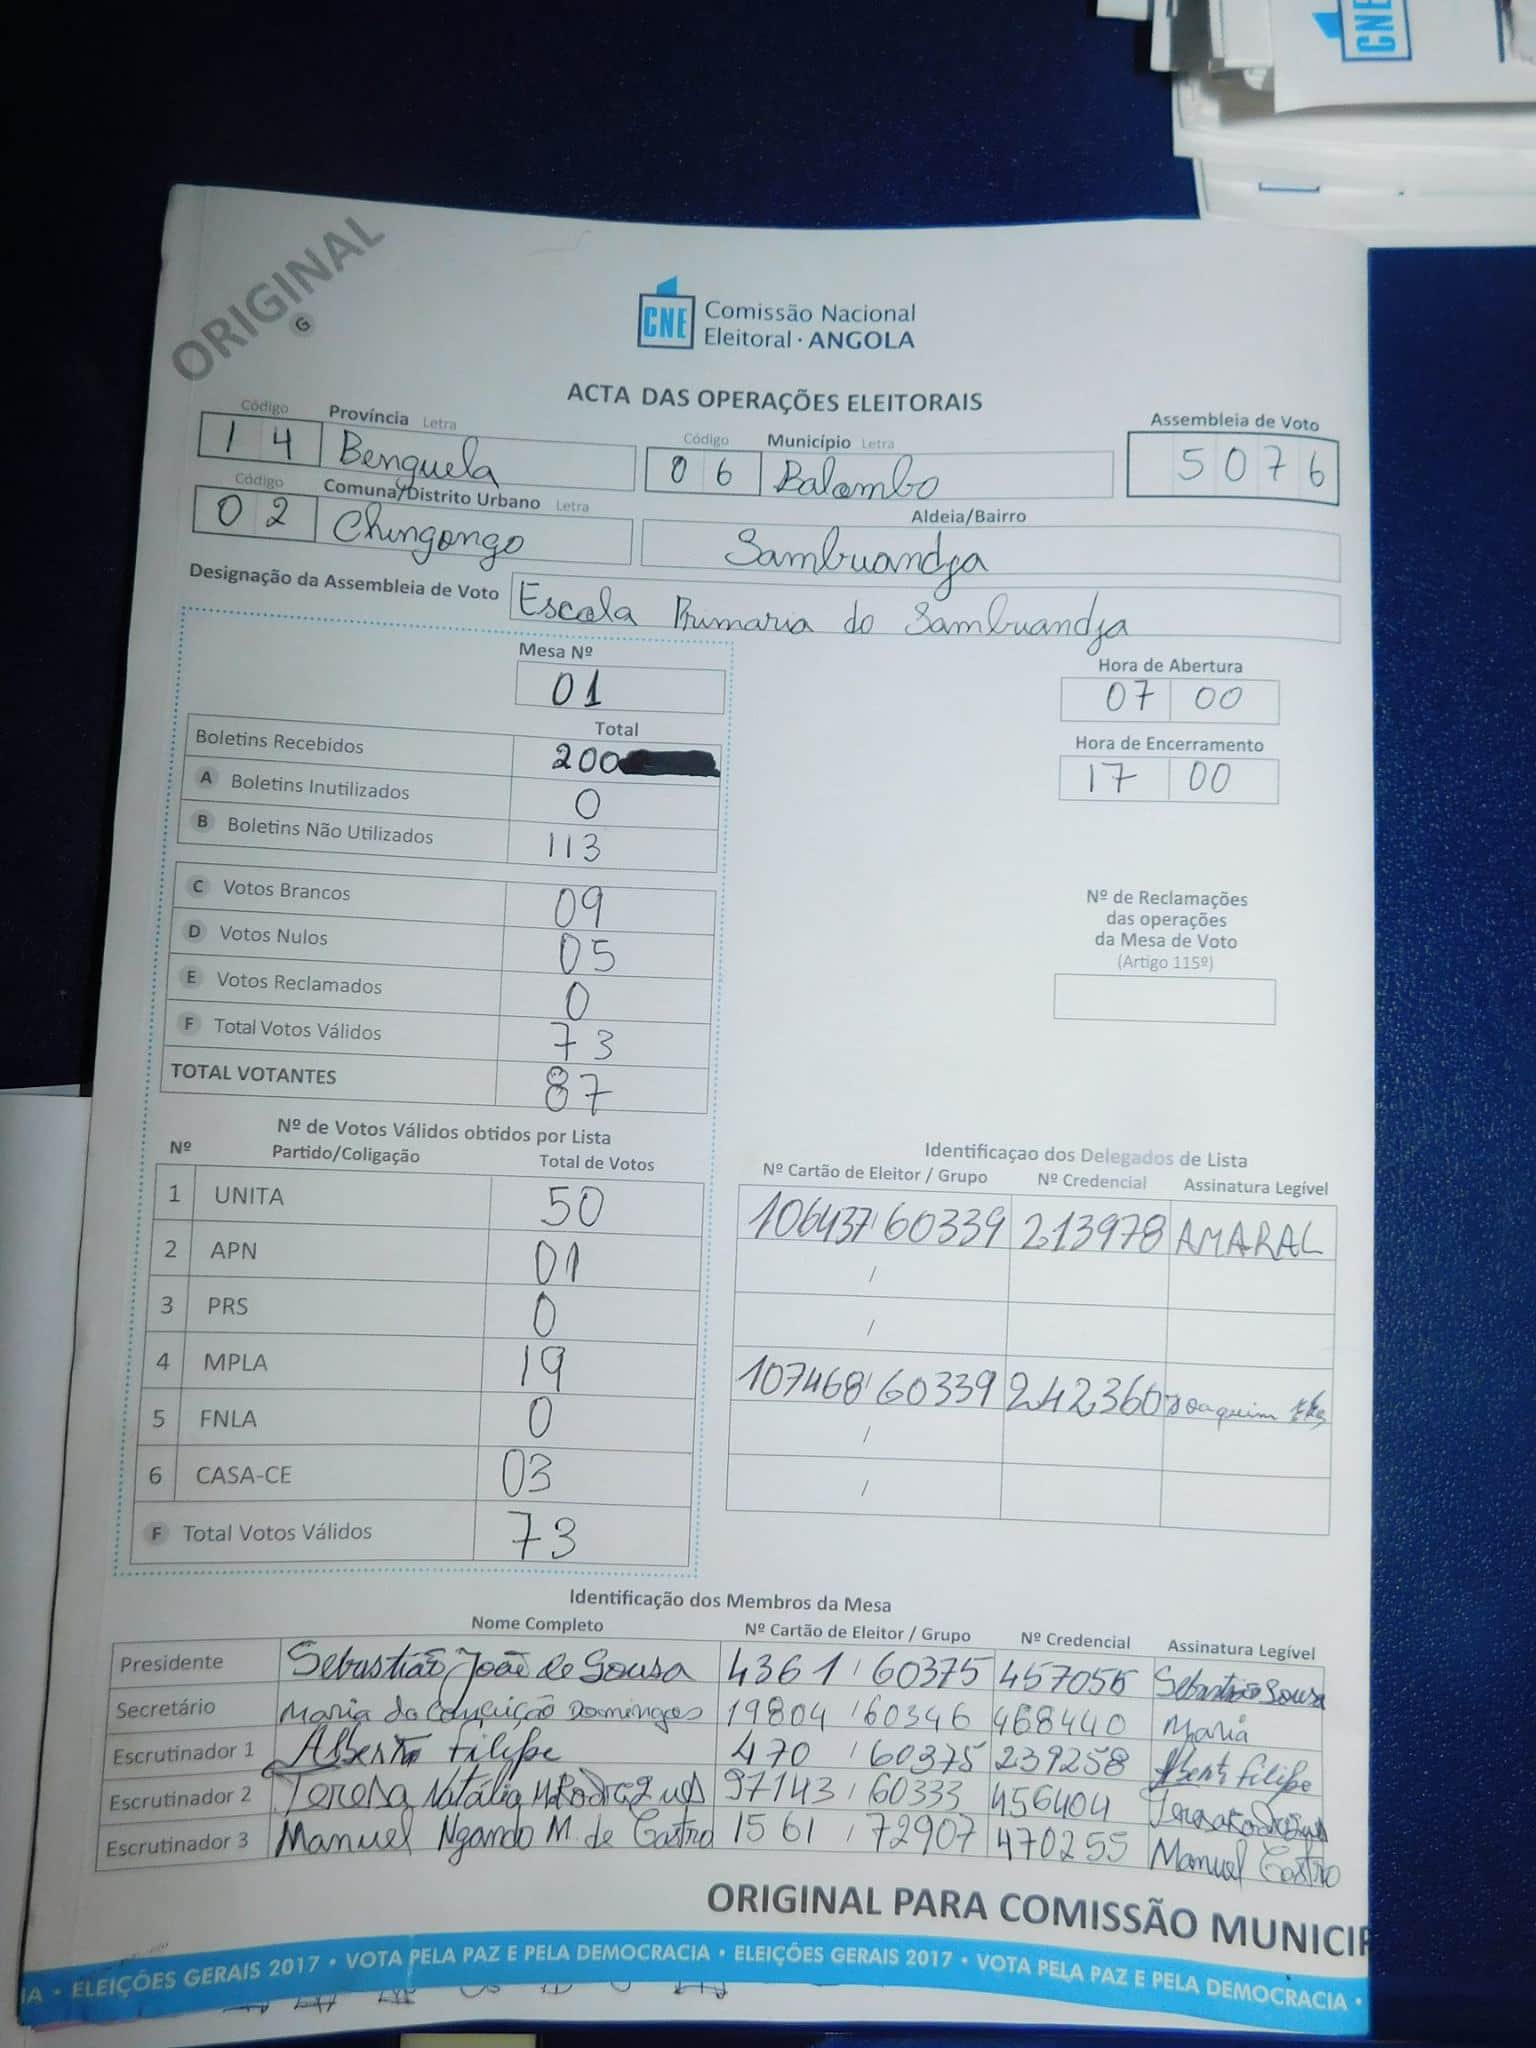 CNE
ORIGINAL
G
CNE Comissão Nacional
Eleitoral · ANGOLA
ACTA DAS OPERAÇÕES ELEITORAIS
Código Província Letra Código Município Letra Assembleia de Voto
14 Benguela 06 Balombo 5076
Código Comuna/Distrito Urbano Letra Aldeia/Bairro
02 Chingongo Sambuandja
Designação da Assembleia de Voto Escola Primaria do Sambuandja
Mesa Nº Hora de Abertura
01 07 00
Total Hora de Encerramento
Boletins Recebidos 200 17 00
A Boletins Inutilizados 0
B Boletins Não Utilizados 113
C Votos Brancos 09
D Votos Nulos 05
E Votos Reclamados 0
F Total Votos Válidos 73
TOTAL VOTANTES 87
Nº de Reclamações
das operações
da Mesa de Voto
(Artigo 115º)
Nº de Votos Válidos obtidos por Lista
Nº Partido/Coligação Total de Votos
1 UNITA 50
2 APN 01
3 PRS 0
4 MPLA 19
5 FNLA 0
6 CASA-CE 03
F Total Votos Válidos 73
Identificaçao dos Delegados de Lista
Nº Cartão de Eleitor / Grupo Nº Credencial Assinatura Legível
106437/60339 213978 AMARAL
/
/
107468/60339 242360 Joaquim
/
/
Identificação dos Membros da Mesa
Nome Completo Nº Cartão de Eleitor / Grupo Nº Credencial Assinatura Legível
Presidente Sebastião João de Sousa 4361/60375 457055 Sebastião Sousa
Secretário Maria da Conceição Domingos 19804/60346 468440 Maria
Escrutinador 1 Alberto Filipe 470/60375 239258 Alberto Filipe
Escrutinador 2 Teresa Natália M. Rodrigues 97143/60333 456404
Escrutinador 3 Manuel Ngando M. de Castro 1561/72907 470255 Manuel Castro
ORIGINAL PARA COMISSÃO MUNICIP
IA • ELEIÇÕES GERAIS 2017 • VOTA PELA PAZ E PELA DEMOCRACIA • ELEIÇÕES GERAIS 2017 • VOTA PELA PAZ E PELA DEMOCRACIA •